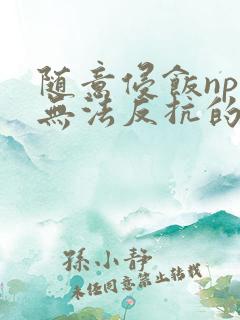 随意侵飯np
無法反抗的
孫小静
未經同意禁止轉載